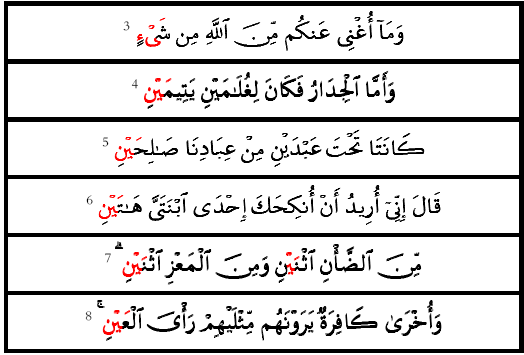 وَمَآ أُغْنِى عَنكُم مِّنَ ٱللَّهِ مِن شَىْءٍ 3
وَأَمَّا ٱلْجِدَارُ فَكَانَ لِغُلَـٰمَيْنِ يَتِيمَيْنِ 4
كَانَتَا تَحْتَ عَبْدَيْنِ مِنْ عِبَادِنَا صَـٰلِحَيْنِ 5
قَالَ إِنِّىٓ أُرِيدُ أَنْ أُنكِحَكَ إِحْدَى ٱبْنَتَىَّ هَـٰتَيْنِ 6
مِّنَ ٱلضَّأْنِ ٱثْنَيْنِ وَمِنَ ٱلْمَعْزِ ٱثْنَيْنِ ۗ 7
وَأُخْرَىٰ كَافِرَةٌ يَرَوْنَهُم مِّثْلَيْهِمْ رَأْىَ ٱلْعَيْنِ ۚ 8